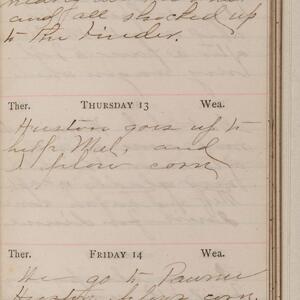 and all shocked up
to the binder.
Ther. THURSDAY 13 Wea.
Huston goes up to
help Mel, and
I plow corn
Ther. FRIDAY 14 Wea.
We go to Pawnee
Huston plows corn